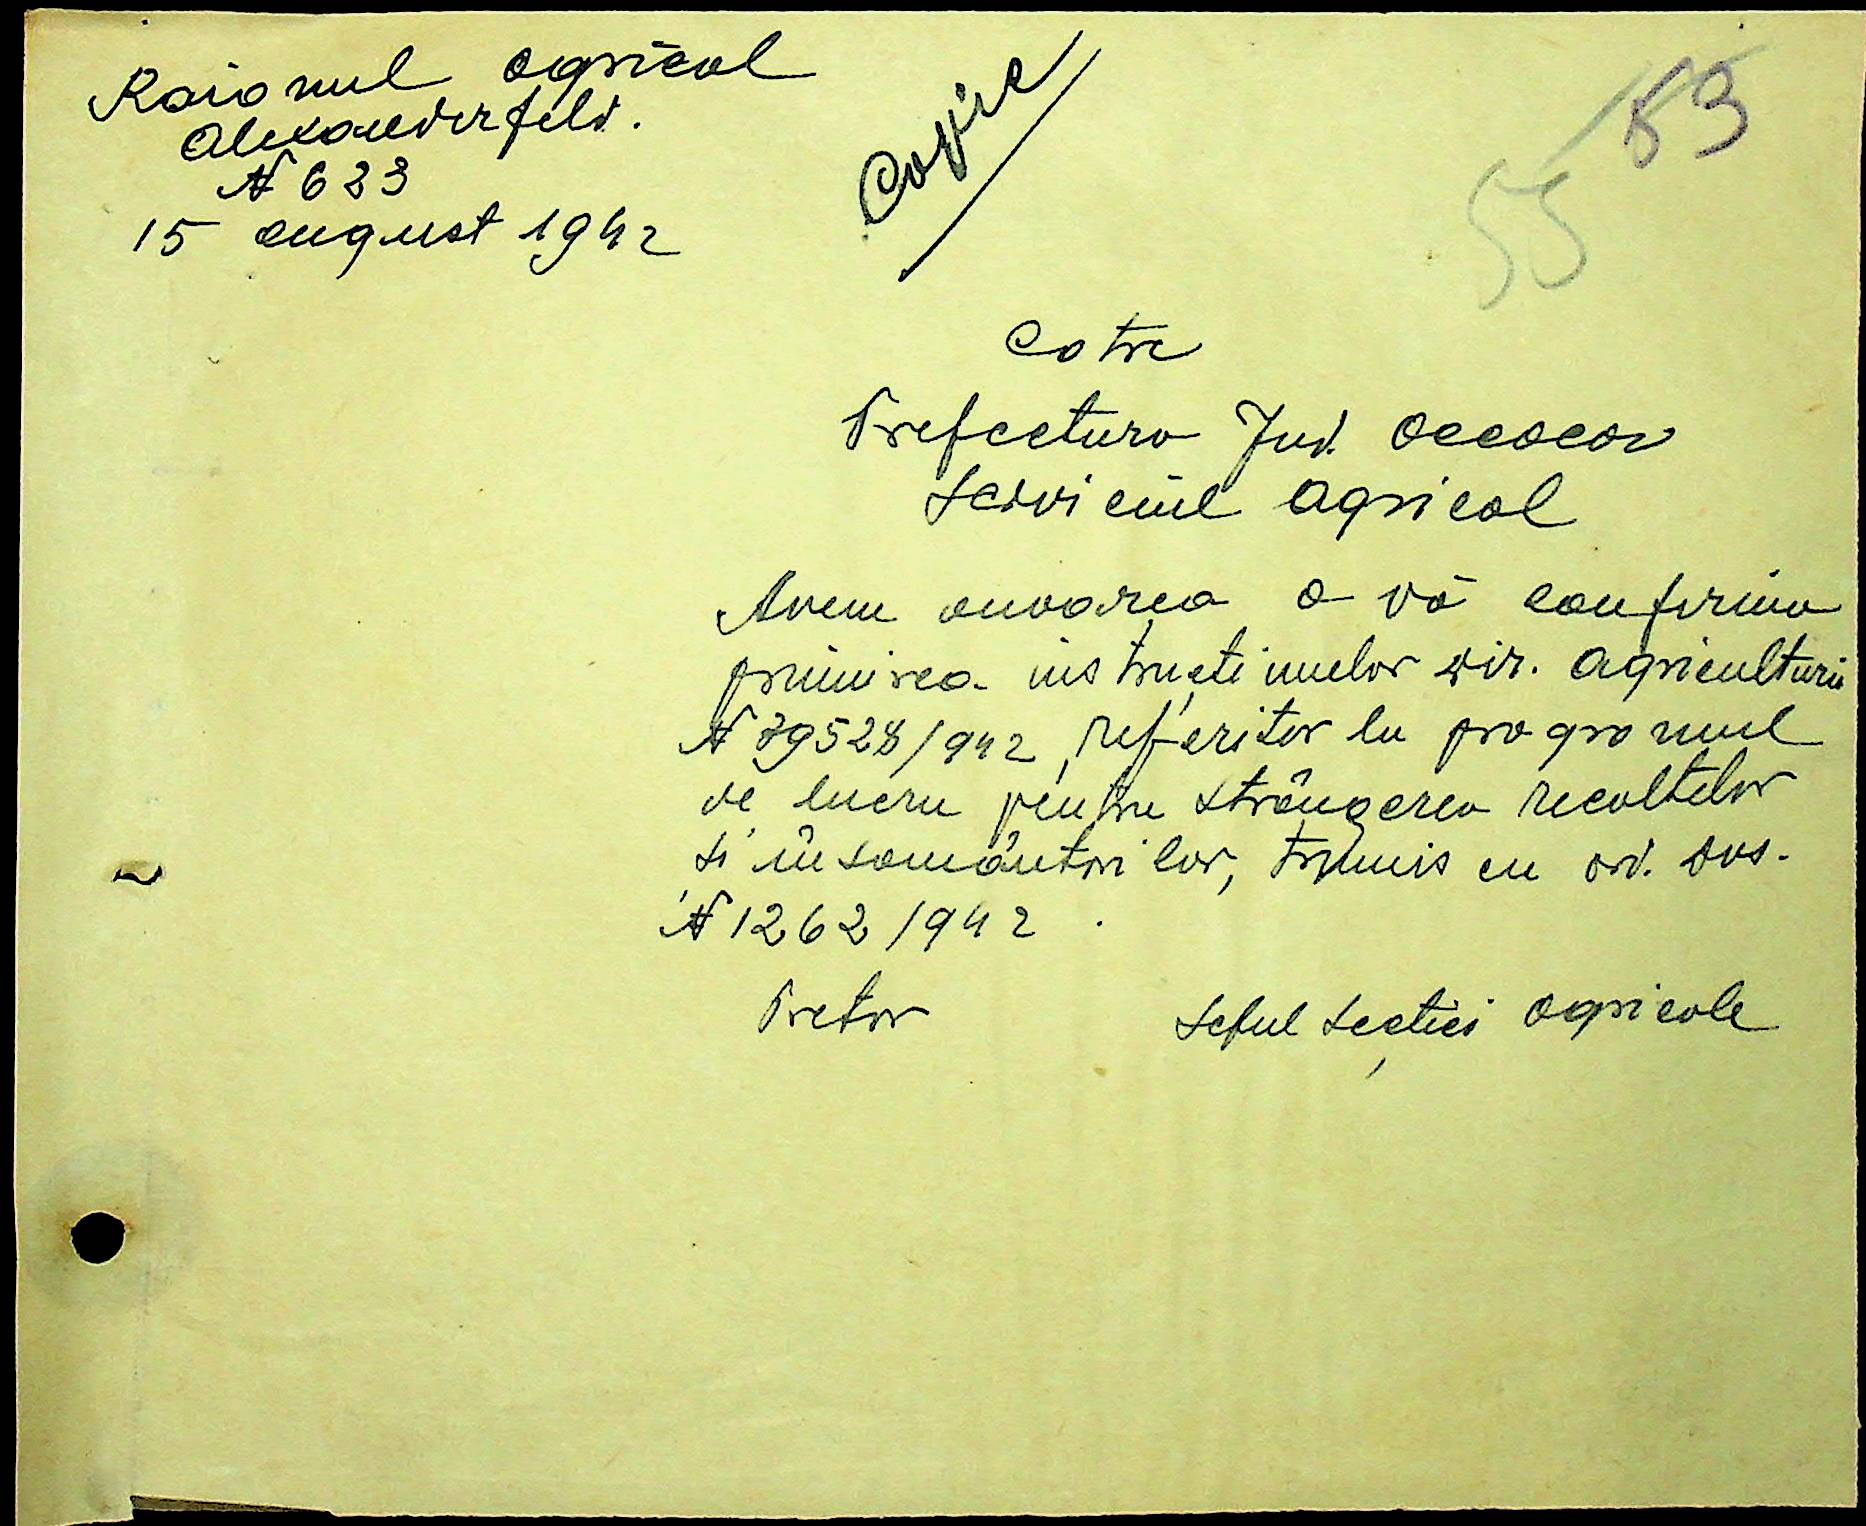 Raionul agricol
Alexanderfeld.
N 623
15 august 1942
Copie
83
55
Catre
Prefectura Jud. Oceacov
Serviciul Agricol
Avem onoarea a vă confirma
primirea instrucţiunelor dir. Agriculturii
N 39528/942, referitor la programul
de lucru pentru strângerea recoltelor
si însamânţărilor, trimis cu ord. dvs.
N 1262/942.
Pretor
Seful Secţiei Agricole